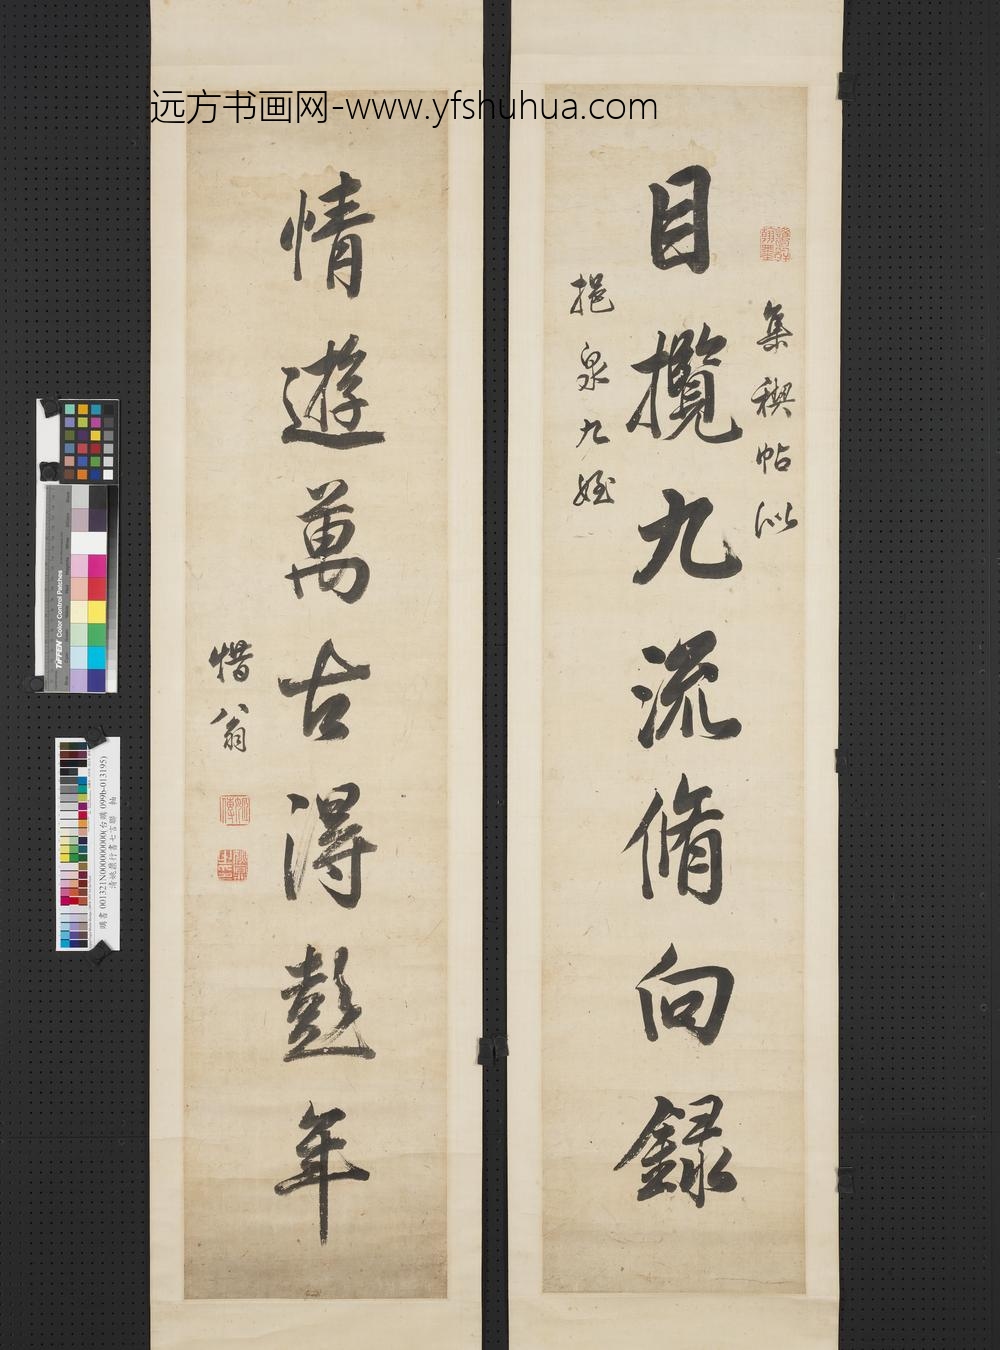 远方书画网-www.yfshuhua.com
集禊帖似
目攬九流脩向録
挹泉九姪
情遊萬古得彭年
惜翁
TIFFEN Color Control Patches
購書001321N000000000(台購 099b-013195)
清姚鼐行書七言聯 軸